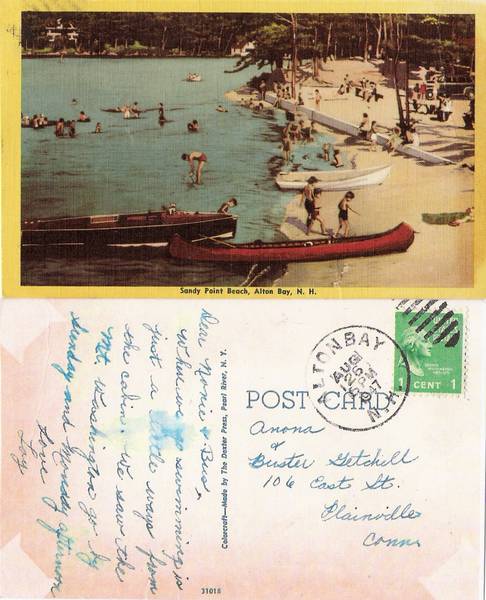 Sandy Point Beach, Alton Bay, N. H.
Dear Nonie & Bus,
Where we go swimming is
just a little ways from
the cabin. We saw the
Mt Washington go by
Sunday and Monday afternoon
Love
Colorcraft—Made by The Dexter Press, Pearl River, N. Y.
POST CARD
ALTON BAY
AUG
26
PM
1947
N.H.
1 CENT 1
Anona
&
Buster Getchell
106 East St.
Plainville
Conn.
31018